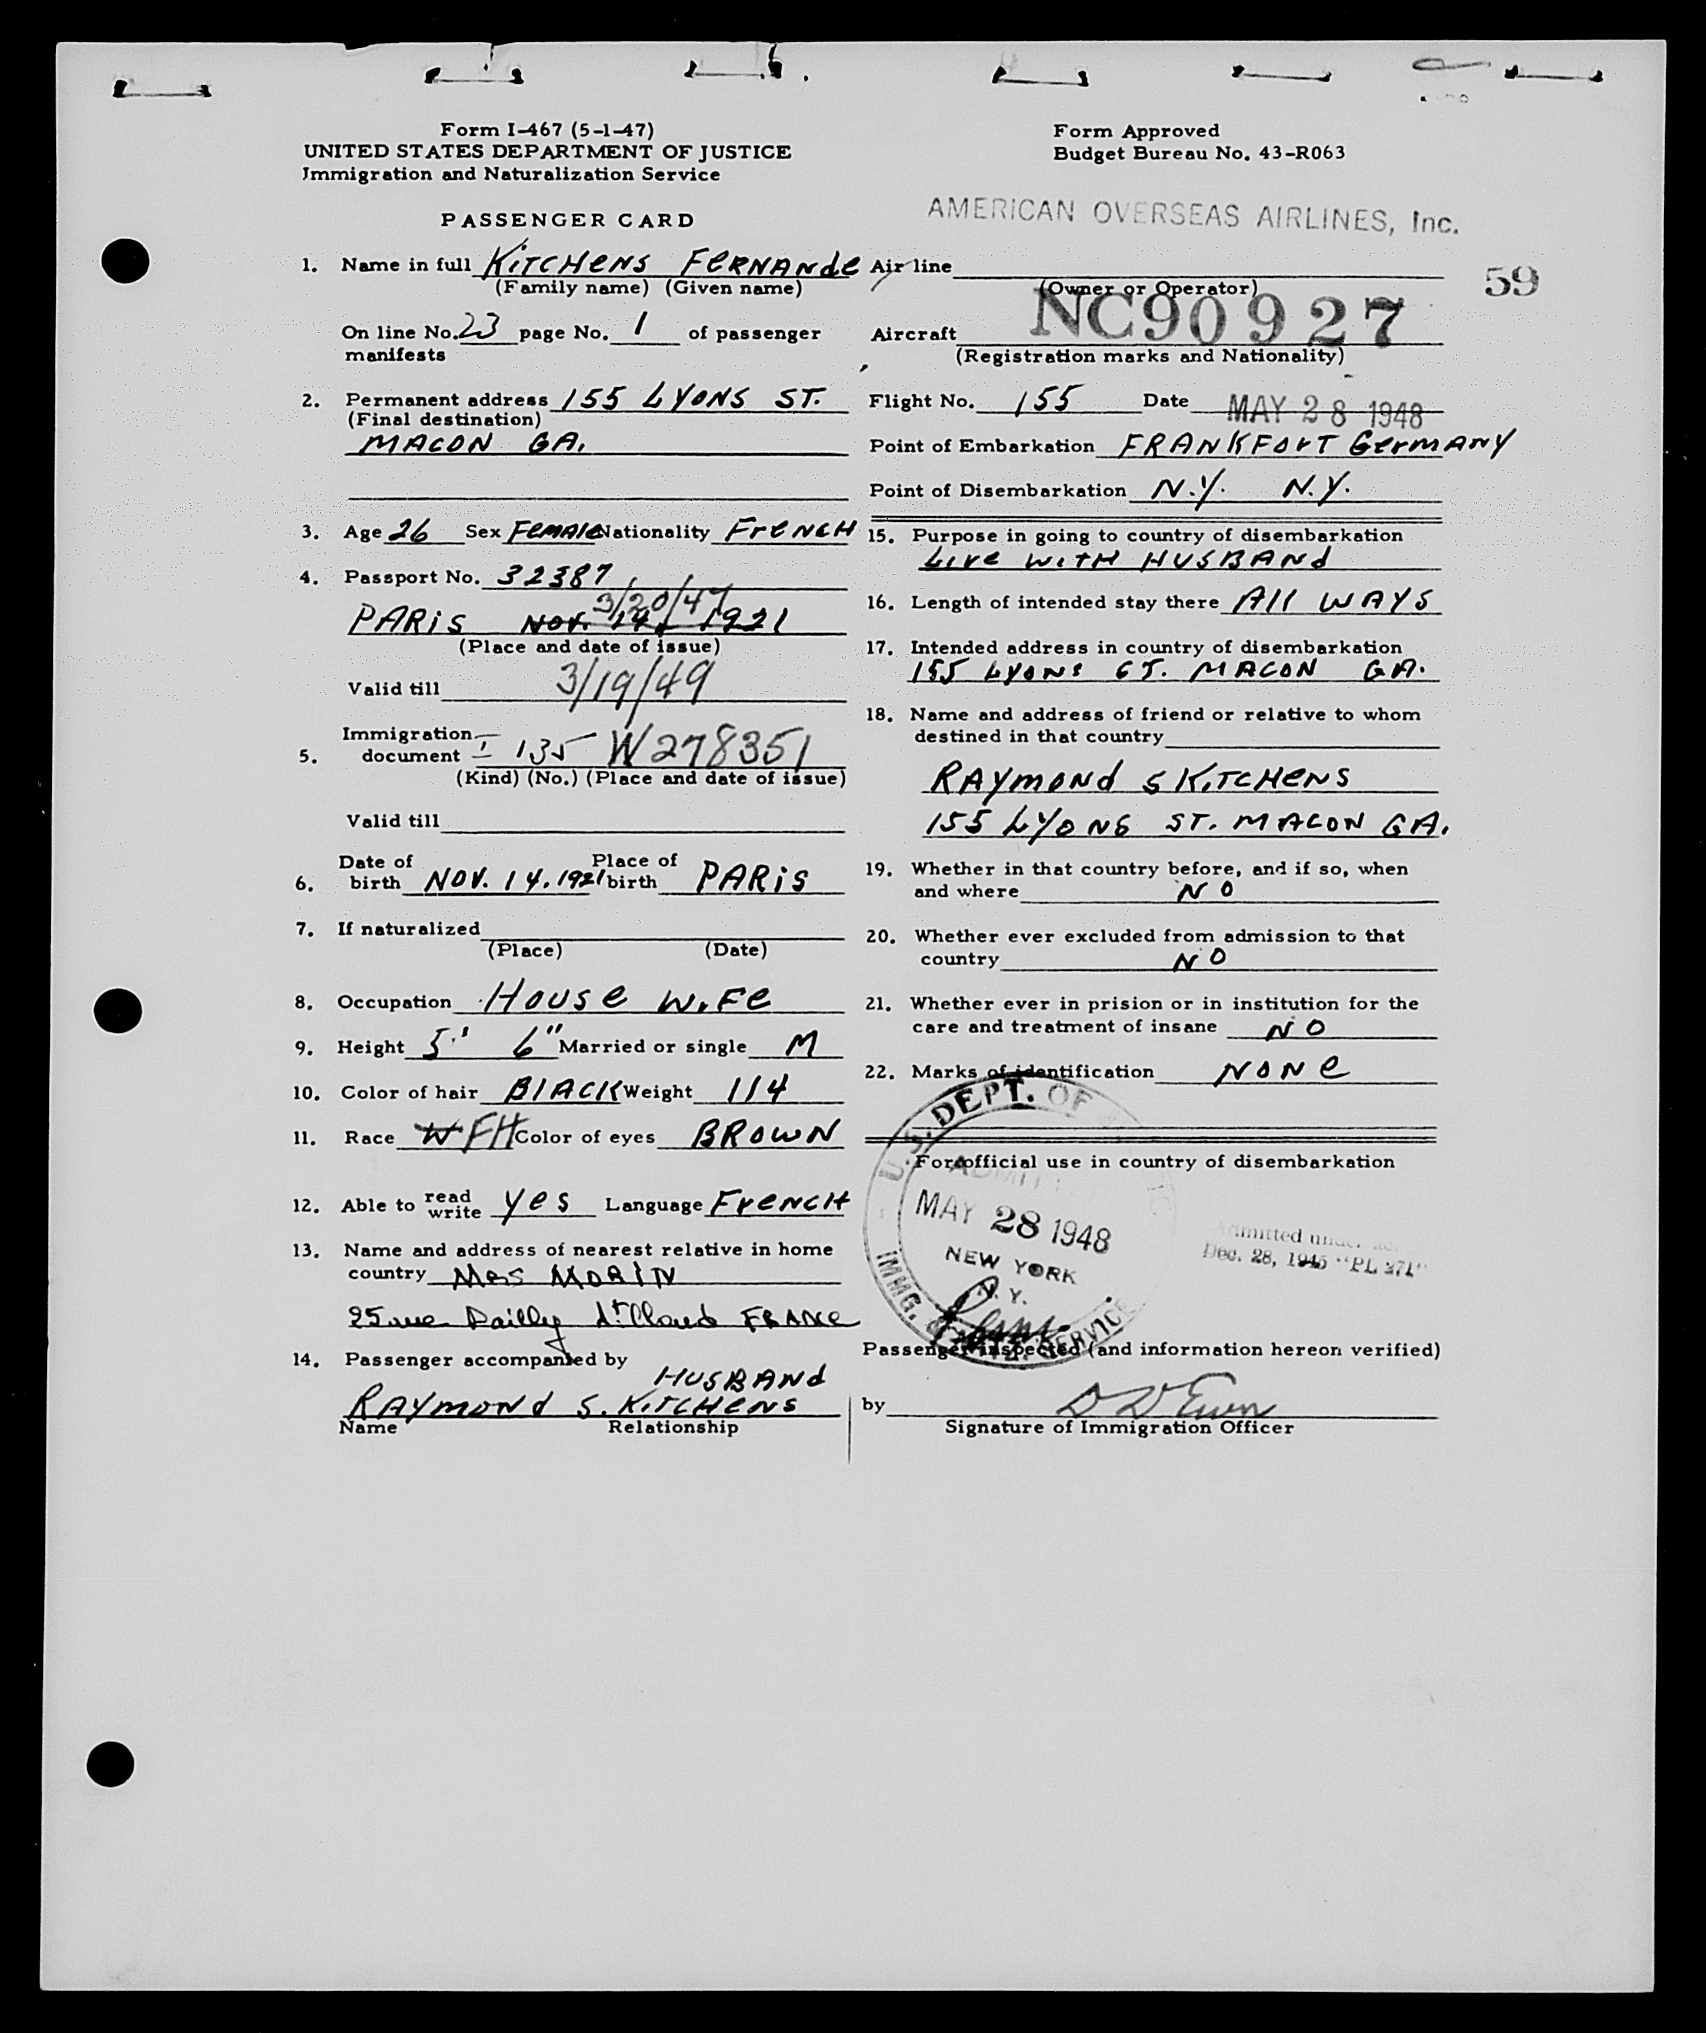 Form I-467 (5-1-47)
UNITED STATES DEPARTMENT OF JUSTICE
Immigration and Naturalization Service
PASSENGER CARD
1. Name in full KITCHENS FERNANDE
(Family name) (Given name)
On line No. 23 page No. 1 of passenger
manifests
2. Permanent address 155 LYONS ST.
(Final destination)
MACON GA.
3. Age 26 Sex FEMALE Nationality FRENCH
4. Passport No. 32387
3/20/47
PARIS NOV. 14, 1921
(Place and date of issue)
Valid till 3/19/49
Immigration
5. document I-135 W278351
(Kind) (No.) (Place and date of issue)
Valid till
6. Date of birth NOV. 14. 1921 Place of birth PARIS
7. If naturalized
(Place) (Date)
8. Occupation HOUSE WIFE
9. Height 5' 6" Married or single M
10. Color of hair BLACK Weight 114
11. Race W FH Color of eyes BROWN
12. Able to read write YES Language FRENCH
13. Name and address of nearest relative in home
country MRS MORIN
25 rue Dailly St Cloud FRANCE
14. Passenger accompanied by
HUSBAND
RAYMOND S. KITCHENS
Name Relationship
Form Approved
Budget Bureau No. 43-R063
AMERICAN OVERSEAS AIRLINES, Inc.
Air line
(Owner or Operator)
59
Aircraft NC90927
(Registration marks and Nationality)
Flight No. 155 Date MAY 28 1948
Point of Embarkation FRANKFORT GERMANY
Point of Disembarkation N.Y. N.Y.
15. Purpose in going to country of disembarkation
LIVE WITH HUSBAND
16. Length of intended stay there ALL WAYS
17. Intended address in country of disembarkation
155 LYONS ST. MACON GA.
18. Name and address of friend or relative to whom
destined in that country
RAYMOND S KITCHENS
155 LYONS ST. MACON GA.
19. Whether in that country before, and if so, when
and where NO
20. Whether ever excluded from admission to that
country NO
21. Whether ever in prision or in institution for the
care and treatment of insane NO
22. Marks of identification NONE
For official use in country of disembarkation
U.S. DEPT. OF
ADMITTED
MAY 28 1948
NEW YORK
N.Y.
IMMG. SERVICE
Admitted under
Dec. 28, 1945 "PL 271"
Passenger inspected (and information hereon verified)
by
Signature of Immigration Officer